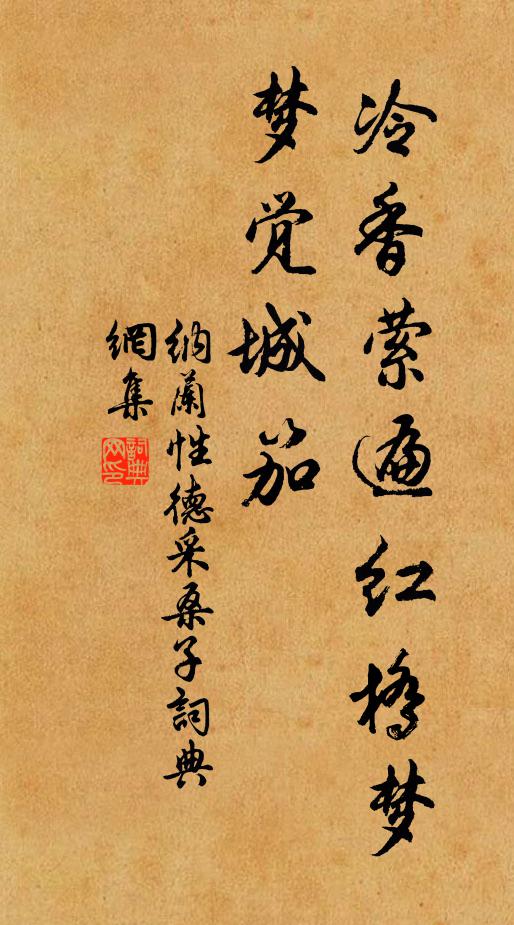 冷香萦遍红桥梦
梦觉城笳
纳兰性德采桑子词典
网集
词典
网印